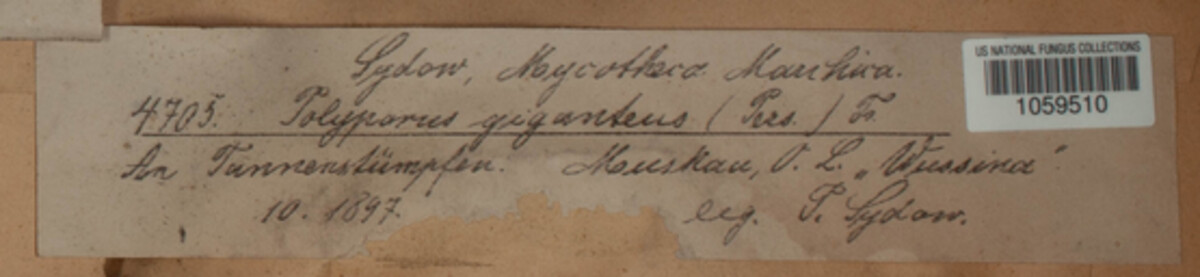 Sydow, Mycotheca Marchica.
4705. Polyporus giganteus (Pers.) Fr.
An Tannenstümpfen. Muskau, O. L. „Wussina".
10. 1897. leg. P. Sydow.
US NATIONAL FUNGUS COLLECTIONS
1059510